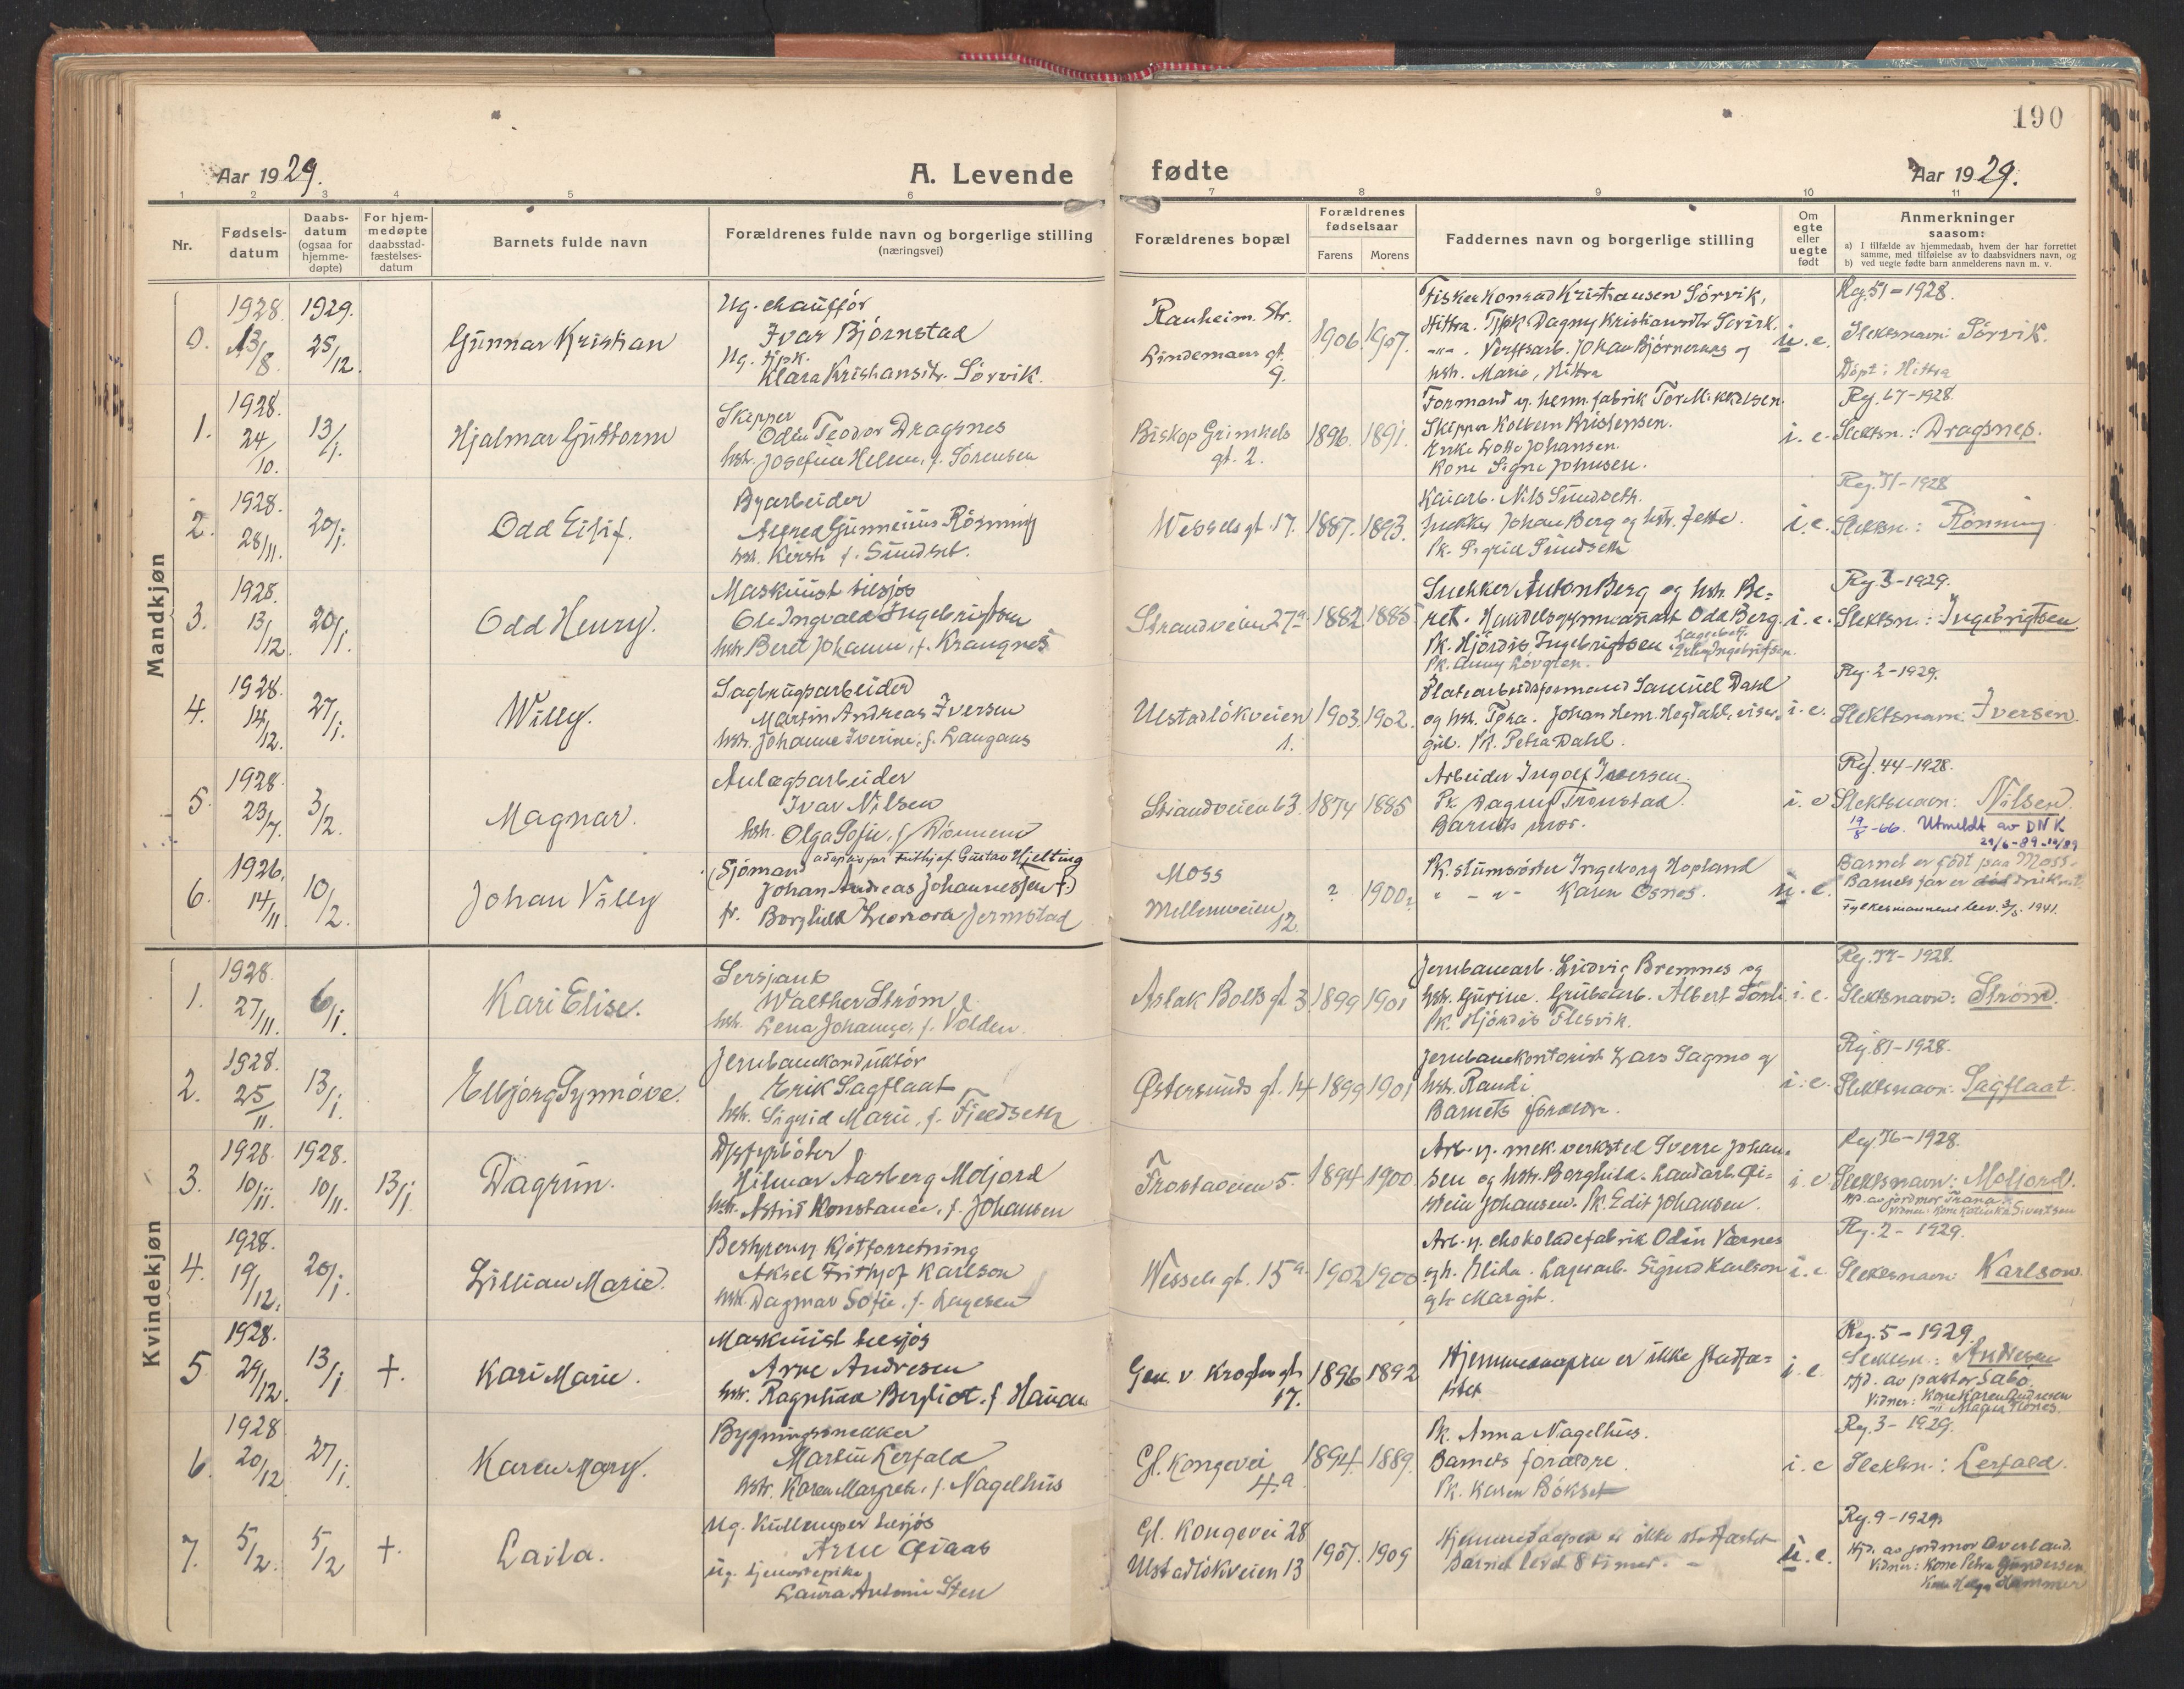 190
Aar 1929.
A. Levende
fødte
Aar 1929.
1 2 3 4 5 6 7 8 9 10 11
Nr.
Fødsels-
datum
Daabs-
datum
(ogsaa for
hjemme-
døpte)
For hjem-
medøpte
daabsstad-
fæstelses-
datum
Barnets fulde navn
Forældrenes fulde navn og borgerlige stilling
(næringsvei)
Forældrenes bopæl
Forældrenes
fødselsaar
Farens Morens
Faddernes navn og borgerlige stilling
Om
egte
eller
uegte
født
Anmerkninger
saasom:
a) I tilfælde av hjemmedaab, hvem der har forrettet
samme, med tilføielse av to daabsvidners navn, og
b) ved uegte fødte barn anmelderens navn m. v.
Mandkjøn
0.
1928. 13/8
1929. 25/12.
Gunnar Kristian
Ug. chauffør
Ivar Bjørnstad
Ug. tjpk.
Klara Kristiansdtr. Sørvik.
Ranheim. Str.
Lindemans gt.
9.
1906. 1907.
Fisker Konrad Kristiansen Sørvik,
Hittra. Tjpk Dagny Kristiansdtr Sørvik.
hstr. Marie, Hittra
u. e.
Reg. 51-1928.
Slektsnavn: Sørvik.
Døpt i Hittra
1.
1928. 24/10.
13/1.
Hjalmar Guttorm
Skipper
Odin Teodor Dragsnes
hstr. Josefine Helene, f. Sørensen
Biskop Grimkels
gt. 2.
1896. 1891.
Formand v. herm. fabrik Tor Mikkelsen.
Skipper Kolbein Kristensen.
Enke Lotte Johansen.
Kone Signe Johnsen.
i. e.
Reg. 67-1928.
Slektsn.: Dragsnes.
2.
1928. 28/11.
20/1.
Odd Eilif.
Byarbeider
Alfred Gunnerius Rønning
hstr. Kirsti f. Sundset.
Wessels gt. 17.
1887. 1893.
Kaiarb. Nils Sundseth.
Snekker Johan Berg og hstr. Jette.
Pk. Sigrid Sundseth
i. e.
Reg. 71-1928
Slektsn.: Rønning
3.
1928. 13/12.
20/1.
Odd Henry.
Maskinist tilsjøs
Ole Ingvald Ingebrigtsen
hstr Beret Johanne, f. Krangnes
Strandveien 27a
1882 1885
Snekker Anton Berg og hstr. Be-
ret. Handelsgymnasiast Odd Berg.
Pk. Hjørdis Ingebrigtsen.
Pk. Anny Løvgren.
i. e.
Reg. 3-1929.
Slektsn.: Ingebrigtsen
4.
1928. 14/12.
27/1.
Willy.
Sagbrugsarbeider
Martin Andreas Iversen
hstr. Johanne Iverine, f. Langaas
Ulstadløkveien
1.
1903. 1902.
Platearbeidsformand Samuel Dahl
og hstr. Tora. Johan Henr. Hegdahl, viser-
gut. Pk. Petra Dahl.
i. e.
Reg. 2-1929.
Slektsnavn: Iversen.
5.
1928. 23/7.
3/2.
Magnar.
Anlægsarbeider
Ivar Nilsen
hstr. Olga Sofie, f. Dønnem
Strandveien 63
1874 1885
Arbeider Ingolf Iversen.
Pk. Dagny Tronstad.
Barnets mor.
i. e
Reg. 44-1928.
Slektsnavn: Nilsen.
19/8-66. Utmeldt av DNK
6.
1926. 14/11.
10/2.
Johan Villy
adoptivfar Frithjof Gustav Hjelting
(Sjømand
Johan Andreas Johannessen †.)
fr. Borghild Leonora Jermstad
Moss
Mellemveien
12.
? 1900.
Pk. stumsøster Ingeborg Hopland
" - " - Karen Osnes.
u. e.
Barnet er født paa Moss.
Barnets far er død druknet.
Fylkesmannens bev. 3/5. 1941.
Kvindekjøn
1.
1928 27/11.
6/1.
Kari Elise.
Sersjant
Walther Strøm
hstr. Lena Johanne, f. Volden.
Aslak Bolts gt 3.
1899 1901
Jernbanearb. Ludvig Bremnes og
hstr. Gurine. Grubearb. Albert Sørli
Pk. Hjørdis Flesvik.
i. e.
Reg. 77-1928.
Slektsnavn: Strøm.
2.
1928. 25/11.
13/1.
Elbjørg Synnøve.
Jernbanekonduktør
Erik Sagflaat
hstr. Sigrid Marie, f. Fjeldseth
Østersunds gt. 14
1899 1901
Jernbanekontorist Lars Sagmo og
hstr. Randi
Barnets forældre.
i. e.
Reg. 81-1928.
Slektsnavn: Sagflaat.
3.
1928 10/11.
1928. 10/11.
13/1
Dagrun.
Hilmar Aasberg Moljord
hstr. Astrid Konstance, f. Johansen
Frostaveien 5.
1894 1900
Arb. v. mek. verksted Sverre Johan-
sen og hstr. Borghild. Landarb. Øi-
stein Johansen. Pk. Edit Johansen.
i. e
Reg 76-1928.
Slektsnavn: Moljord.
Hjd. av jordmor Frana.
4.
1928. 19/12.
20/1.
Lillian Marie.
Bestyrer v. Kjøtforretning
Aksel Frithjof Karlson
hstr. Dagmar Sofie, f. Lagesen
Wessels gt. 15a.
1902 1900
Arb. v. chokoladefabrik Odin Værnes
og h. Hilda. Lagerarb. Sigurd Karlson
og h. Margit.
i. e.
Reg. 2-1929.
Slektsnavn: Karlson.
5
1928. 29/12.
13/1
+.
Kari Marie.
Maskinist tilsjøs
Arne Andresen
hstr. Ragnhild Bergliot. f Hanan
Gen. v Kroghs gt.
17.
1896 1892
Hjemmedaapen er ikke stadfæ-
stet
i. e.
Reg. 5-1929.
Slektsn.: Andresen
Hjd. av pastor Sabo.
Vidner: Kone Karen Andresen
6
1928 20/12
27/1.
Karen Mary.
Bygningssnekker
Martin Lerfald
hstr. Karen Margrete, f. Nagelhus
Gl. Kongevei
4.a
1894. 1889.
Pk. Anna Nagelhus.
Barnets forældre.
Pk. Karen Bøkset
i. e
Reg. 3-1929.
Slektsn.: Lerfald.
7.
5/2.
5/2
+.
Laila.
Ug. Kullemper tilsjøs
Arne Øiaas
ug. tjenestepike
Laura Antonie Sten
Gl. Kongevei 28
Ulstadløkveien 13
1907. 1909
Hjemmedaapen er ikke stadfæstet
Barnet levet 8 timer.
u. e.
Reg. 9-1929.
Hjd. av jordmor Overland.
Vidner: Kone Petra Gundersen
Kone Helga Hammer